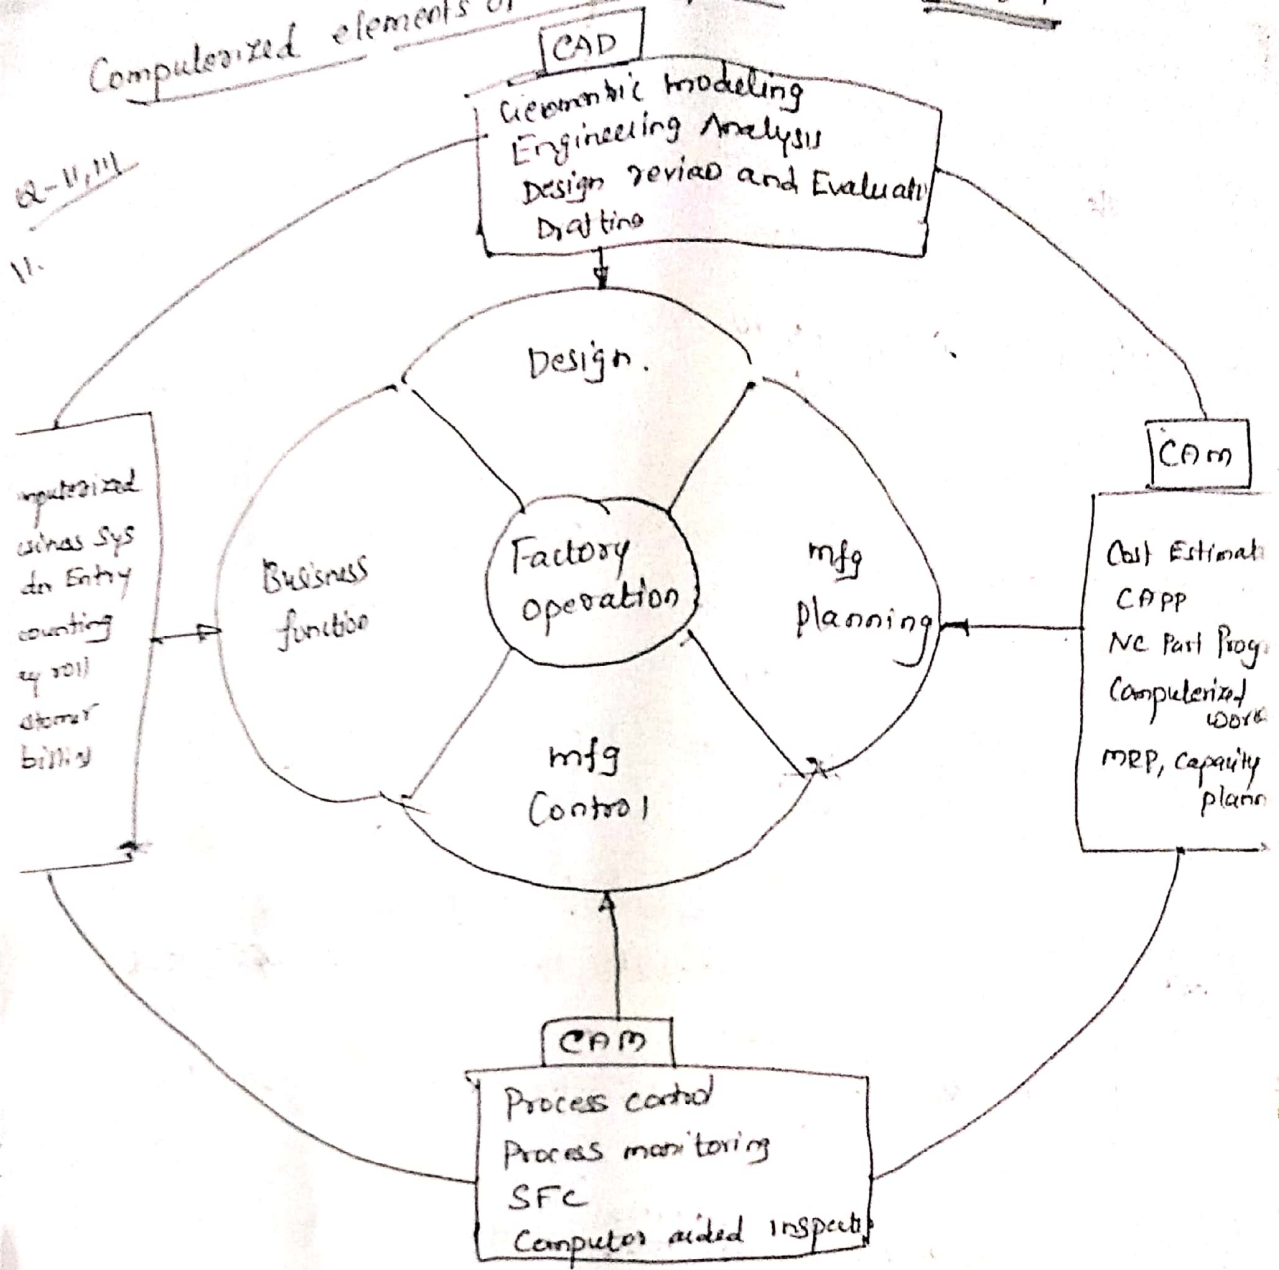 Computerized elements of
Q-II,III
11.
CAD
Geomentric modeling
Engineering Analysis
Design reviao and Evaluati
Drafting
Design.
CAM
Cost Estimati
CAPP
NC Part Prog
Computerized
work
MRP, Capacity
plann
mputerized
usiness Sys
der Entry
counting
ay roll
stomer
billing
Busisness
function
Factory
operation
mfg
planning
mfg
Control
CAM
Process control
Process monitoring
SFC
Computor aided inspecti